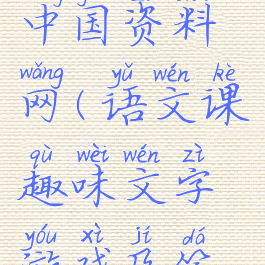 中国资料
wǎng yǔ wén kè
网（语文课
qù wèi wén zì
趣味文字
yóu xì jí dá
游戏及答